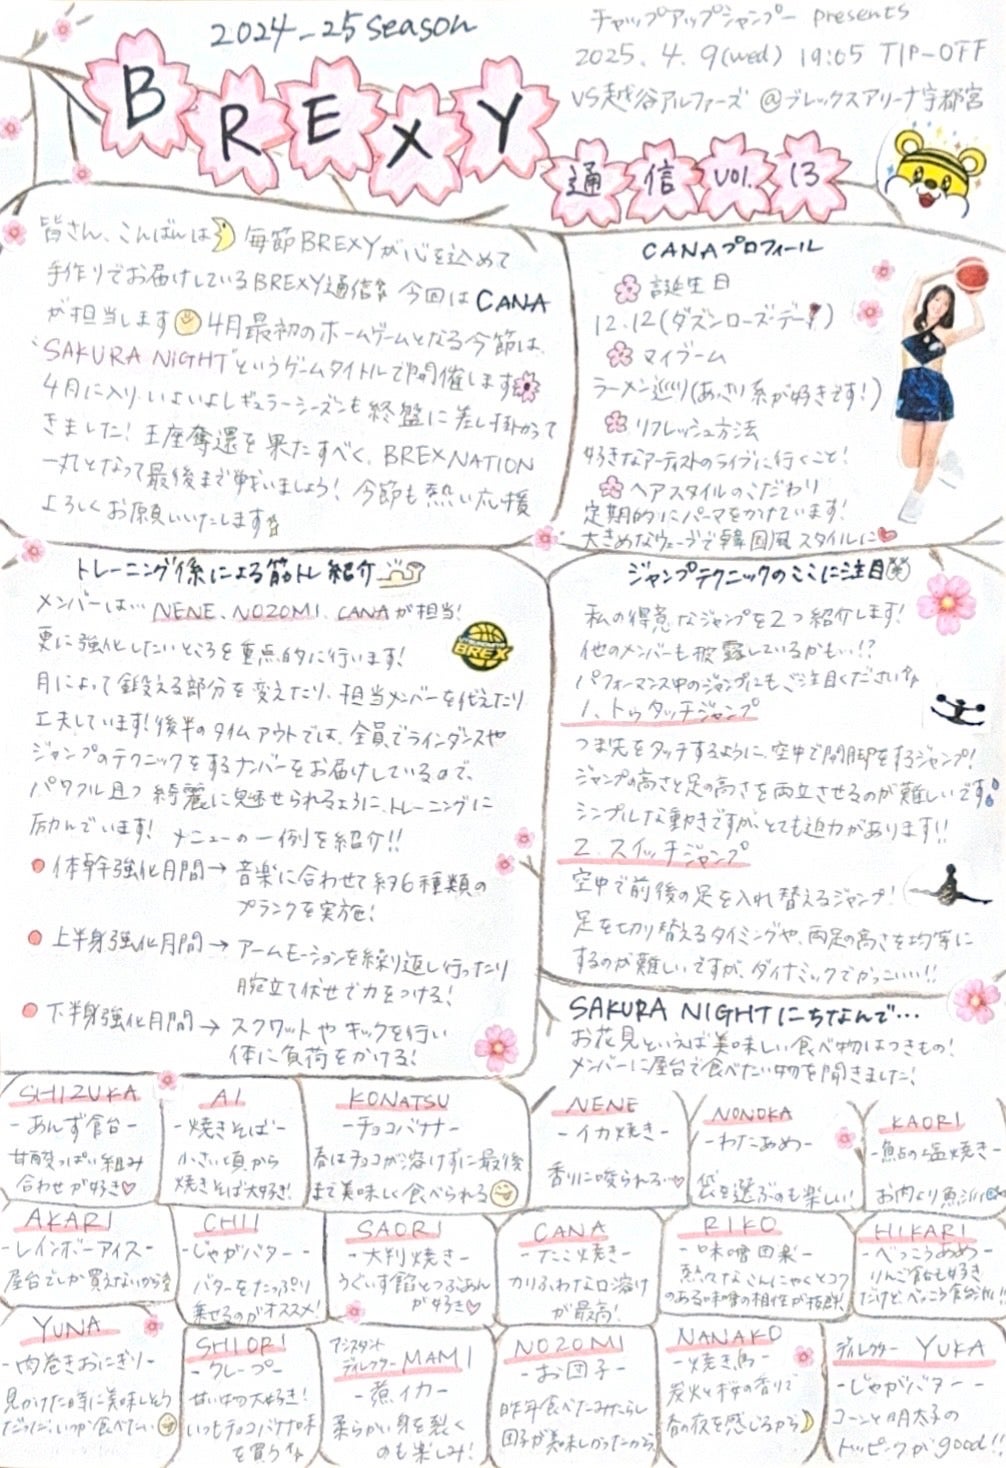 2024-25 season
チャップアップシャンプー presents
2025. 4. 9(wed) 19:05 TIP-OFF
VS越谷アルファーズ @ブレックスアリーナ宇都宮
BREXY
通信 vol. 13
皆さん、こんばんは 毎節BREXYが心を込めて
手作りでお届けしているBREXY通信 今回はCANA
が担当します 4月最初のホームゲームとなる今節は、
"SAKURA NIGHT"というゲームタイトルで開催します
4月に入り、いよいよレギュラーシーズンも終盤に差し掛かって
きました! 王座奪還を果たすべく、BREXNATION
一丸となって最後まで戦いましょう! 今節も熱い応援
よろしくお願いいたします
CANAプロフィール
誕生日
12.12(ダズンローズデー)
マイブーム
ラーメン巡り(あっさり系が好きです!)
リフレッシュ方法
好きなアーティストのライブに行くこと!
ヘアスタイルのこだわり
定期的にパーマをかけています!
大きめなウェーブで韓国風スタイルに
トレーニング係による筋トレ紹介
メンバーは… NENE、NOZOMI、CANAが担当!
更に強化したいところを重点的に行います!
月によって鍛える部分を変えたり、担当メンバーを代えたり
工夫しています! 後半のタイムアウトでは、全員でラインダンスや
ジャンプのテクニックをするナンバーをお届けしているので、
パワフル且つ綺麗に魅せられるように、トレーニングに
励んでいます! メニューの一例を紹介!!
体幹強化月間→ 音楽に合わせて約6種類の
プランクを実施!
上半身強化月間→ アームモーションを繰り返し行ったり
腕立て伏せで力をつける!
下半身強化月間→ スクワットやキックを行い
体に負荷をかける!
BREX
ジャンプテクニックのここに注目
私の得意なジャンプを2つ紹介します!
他のメンバーも披露しているかも…!?
パフォーマンス中のジャンプにもご注目ください
1. トゥタッチジャンプ
つま先をタッチするように、空中で開脚をするジャンプ!
ジャンプの高さと足の高さを両立させるのが難しいです
シンプルな動きですが、とても迫力があります!!
2. スイッチジャンプ
空中で前後の足を入れ替えるジャンプ!
足を切り替えるタイミングや、両足の高さを均等に
するのが難しいですが、ダイナミックでかっこいい!!
SAKURA NIGHTにちなんで…
お花見といえば美味しい食べ物はつきもの!
メンバーに屋台で食べたい物を聞きました!
SHIZUKA
-あんず飴-
甘酸っぱい組み
合わせが好き
AI
-焼きそば-
小さい頃から
焼きそば大好き!
KONATSU
-チョコバナナ-
春はチョコが溶けずに最後
まで美味しく食べられる
NENE
-イカ焼き-
香りに唆られる…
NONOKA
-わたあめ-
袋を選ぶのも楽しい!
KAORI
-鮎の塩焼き-
お肉より魚派
AKARI
-レインボーアイス-
屋台でしか買えないから
CHII
-じゃがバター-
バターをたっぷり
乗せるのがオススメ!
SAORI
-大判焼き-
うぐいす餡とつぶあん
が好き
CANA
-たこ焼き-
カリふわな口溶け
が最高!
RIKO
-味噌田楽-
熱々なこんにゃくとコク
のある味噌の相性が抜群!
HIKARI
-べっこうあめ-
りんご飴も好き
だけど、べっこう飴派!!
YUNA
-肉巻きおにぎり-
見かけた時に美味しそう
だった、いつか食べたい
SHIORI
-クレープ-
甘い物大好き!
いつもチョコバナナ味
を買う
アシスタント
ディレクター MAMI
-煮イカ-
柔らかい身を裂く
のも楽しみ!
NOZOMI
-お団子-
昨年食べたみたらし
団子が美味しかったから
NANAKO
-焼き鳥-
炭火と桜の香りで
春の夜を感じるから
ディレクター YUKA
-じゃがバター-
コーンと明太子の
トッピングがgood!!